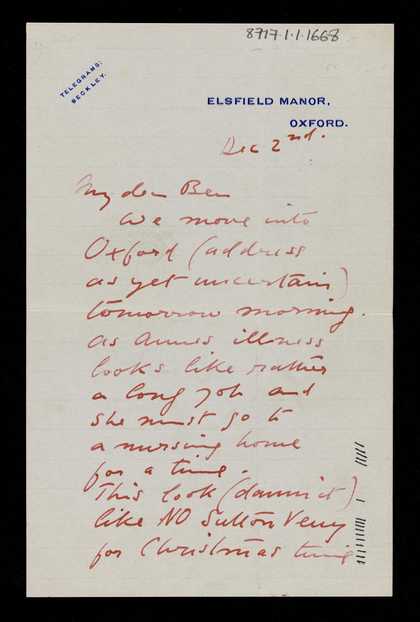 8717.1.1.1668
TELEGRAMS:
BECKLEY.
ELSFIELD MANOR,
OXFORD.
Dec 2nd.
My dear Ben
We move into
Oxford (address
as yet uncertain)
tomorrow morning.
as Annes illness
looks like rather
a long job and
she must go to
a nursing home
for a time.
This look (damn it)
like NO Sutton Veny
for Christmas time